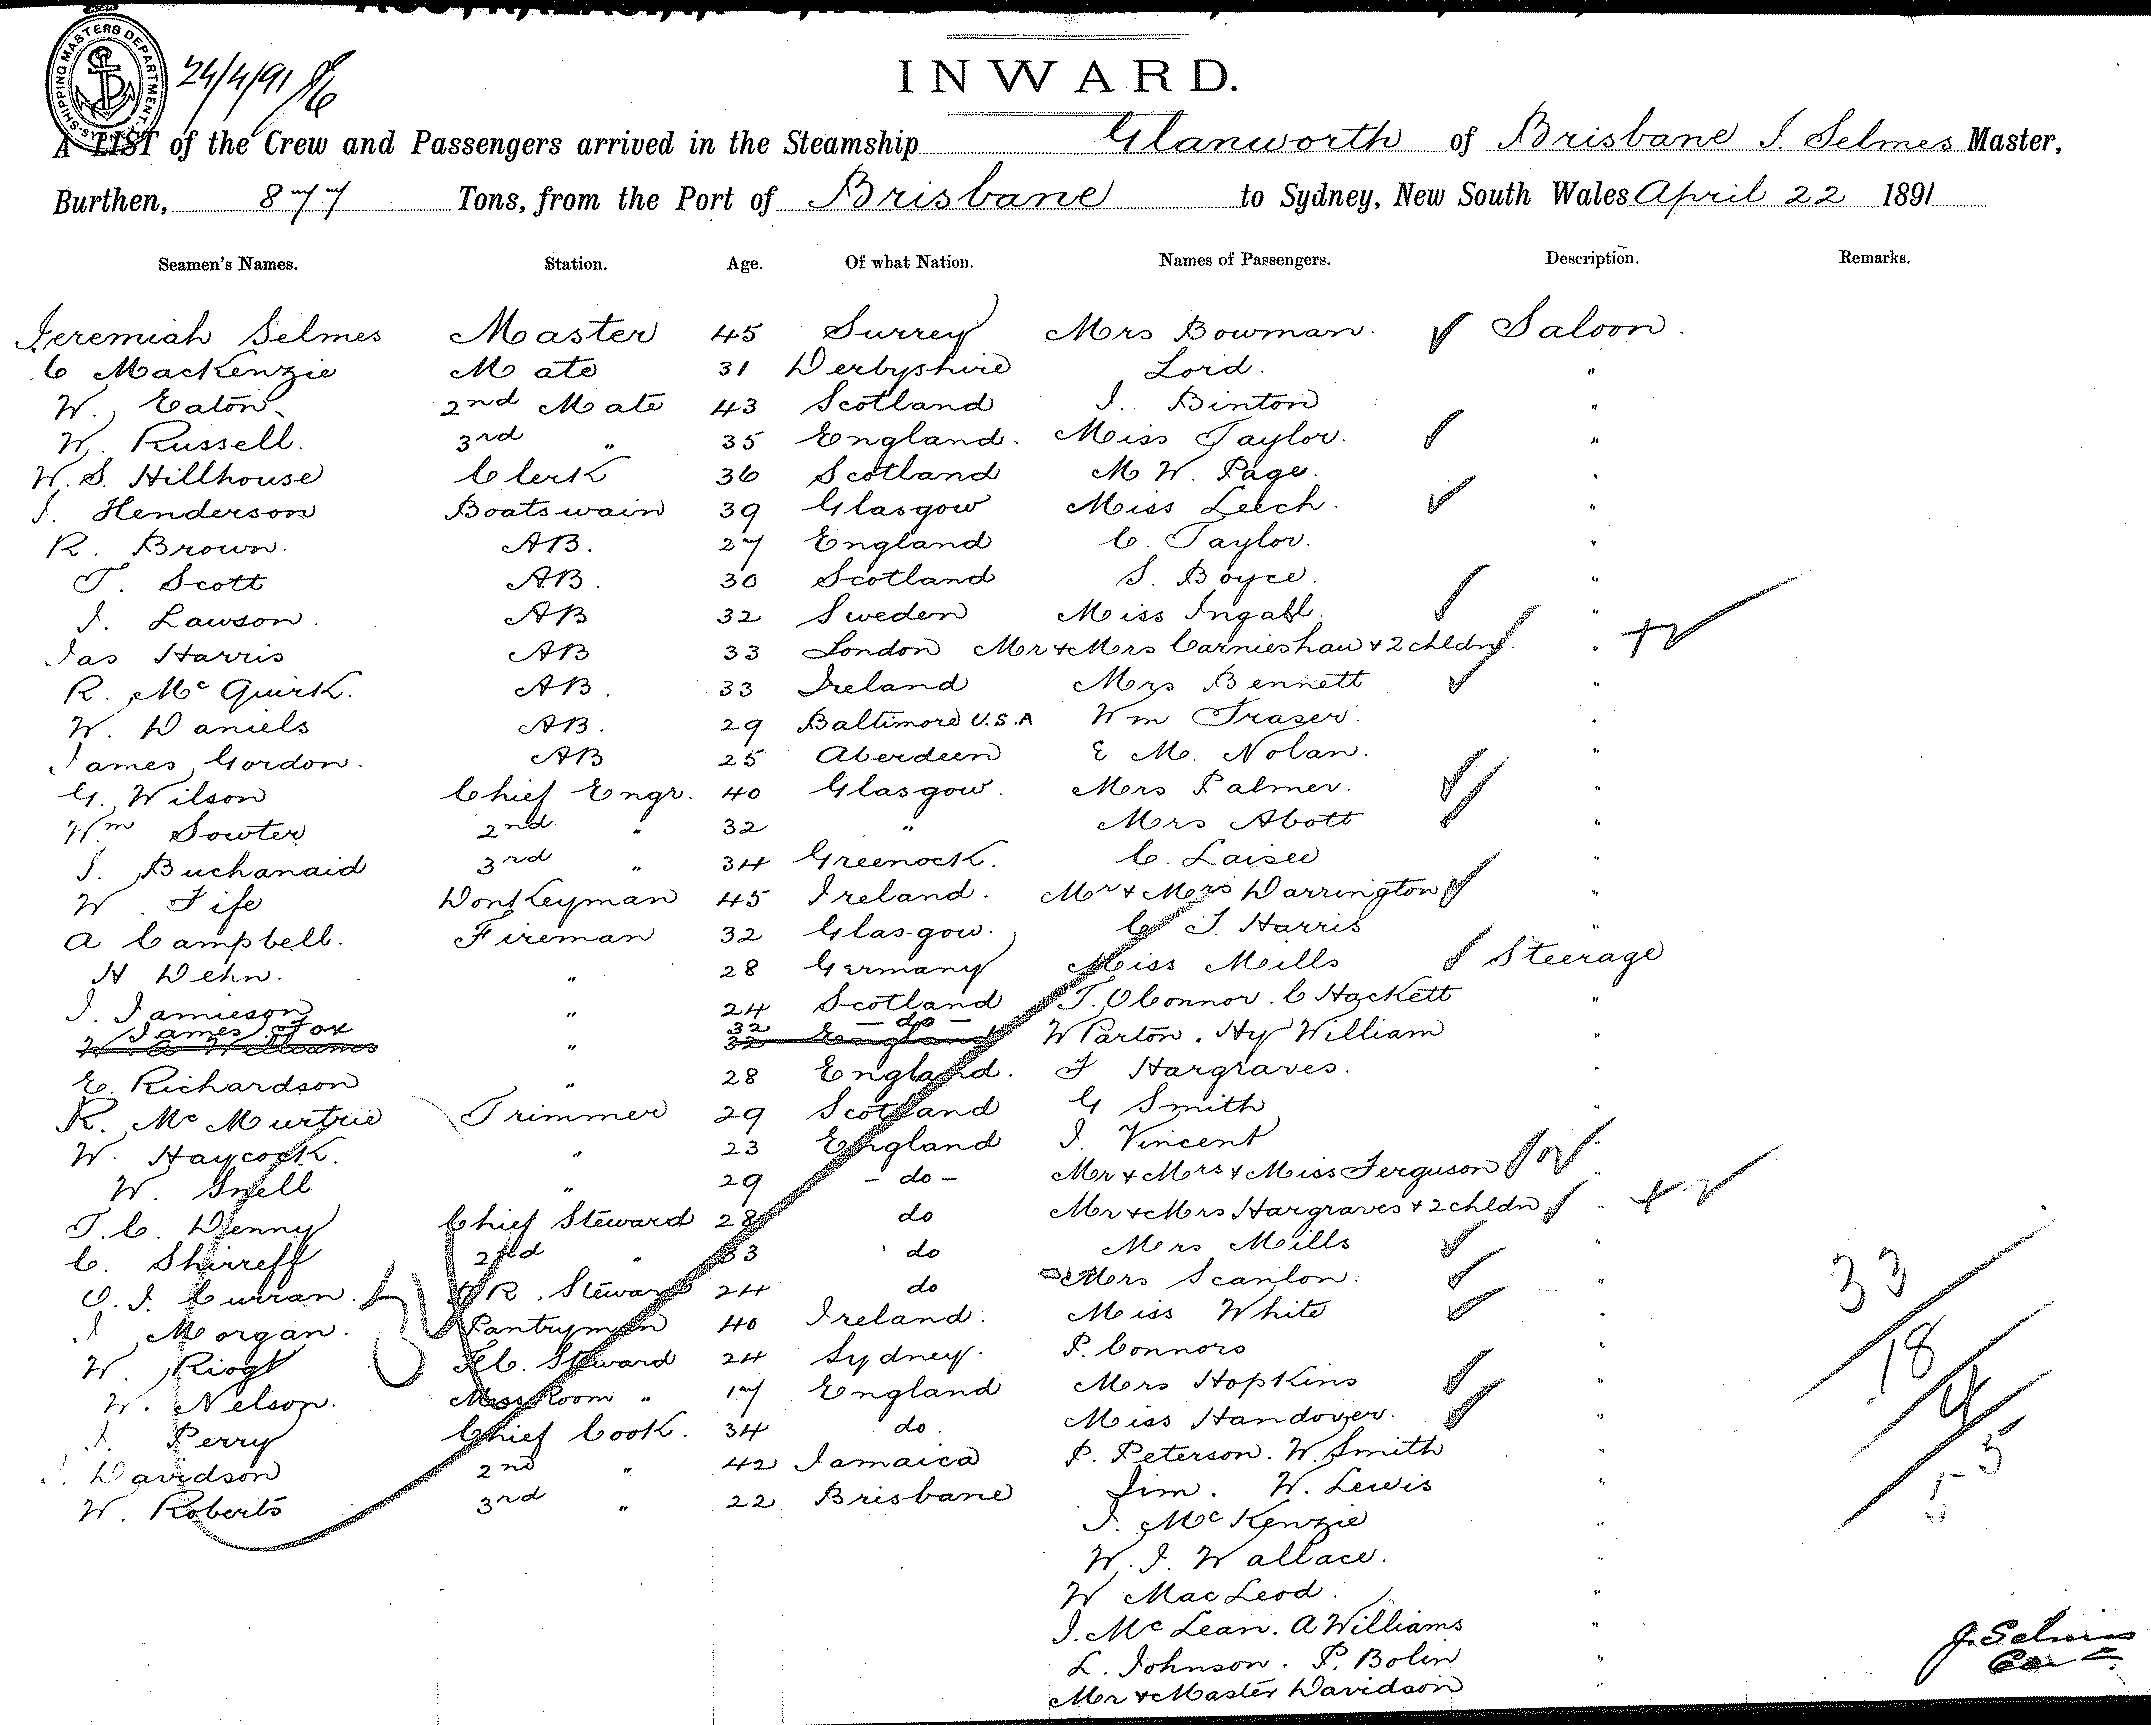 SHIPPING MASTERS DEPARTMENT
24/4/91
INWARD.
A LIST of the Crew and Passengers arrived in the Steamship Glanworth of Brisbane J. Selmes Master,
Burthen, 877 Tons, from the Port of Brisbane to Sydney, New South Wales April 22 1891
Seamen's Names. Station. Age. Of what Nation. Names of Passengers. Description. Remarks.
Jeremiah Selmes Master 45 Surrey Mrs Bowman. Saloon.
C MacKenzie Mate 31 Derbyshire Lord. "
W. Eaton 2nd Mate 43 Scotland J. Binton "
W. Russell. 3rd " 35 England. Miss Taylor. "
W. S. Hillhouse Clerk 36 Scotland M W. Page. "
J. Henderson Boatswain 39 Glasgow Miss Leech. "
R. Brown. AB. 27 England C. Taylor. "
T. Scott AB. 30 Scotland S. Boyce. "
J. Lawson. AB 32 Sweden Miss Ingall. "
Jas Harris AB 33 London Mr & Mrs Carnieshaw & 2 chldn. "
R. McGuirk. AB. 33 Ireland Mrs Bennett "
W. Daniels AB. 29 Baltimore U.S.A Wm Fraser. "
James Gordon. AB 25 Aberdeen E M. Nolan. "
G. Wilson Chief Engr. 40 Glasgow. Mrs Palmer. "
Wm Sowter 2nd " 32 " Mrs Abott "
J. Buchanaid 3rd " 34 Greenock. C. Laisee "
W. Fife Donkeyman 45 Ireland. Mr & Mrs Warrington "
A Campbell. Fireman 32 Glasgow. C J. Harris "
H Dehn. " 28 Germany Miss Mills Steerage
J. Jamieson " 24 Scotland T. OConnor. C Hackett "
James Fox " 32 - do - W Parton. Hy William "
E. Richardson " 28 England. F Hargraves. "
R. McMurtrie Trimmer 29 Scotland G Smith "
W. Haycock. " 23 England J. Vincent "
W. Snell " 29 - do - Mr & Mrs & Miss Ferguson "
T. C. Denny Chief Steward 28 do Mr & Mrs Hargraves & 2 chldn "
C. Shirreff 2nd " 33 do Mrs Mills "
O. J. Curran. R. Steward 24 do Mrs Scanlon. "
J Morgan. Pantryman 40 Ireland. Miss White "
W. Steward 24 Sydney. P. Connors "
W. Nelson. Mess Room " 17 England Mrs Hopkins "
J. Perry Chief Cook. 34 do. Miss Handover. "
J. Davidson 2nd " 42 Jamaica P. Peterson. W. Smith "
W. Roberts 3rd " 22 Brisbane Jim. W. Lewis "
J. McKenzie "
W. J. Wallace. "
W MacLeod. "
J. McLean. A Williams "
L. Johnson. P. Bolin "
Mr & Master Davidson "
33
18
4
55
J. Selmes